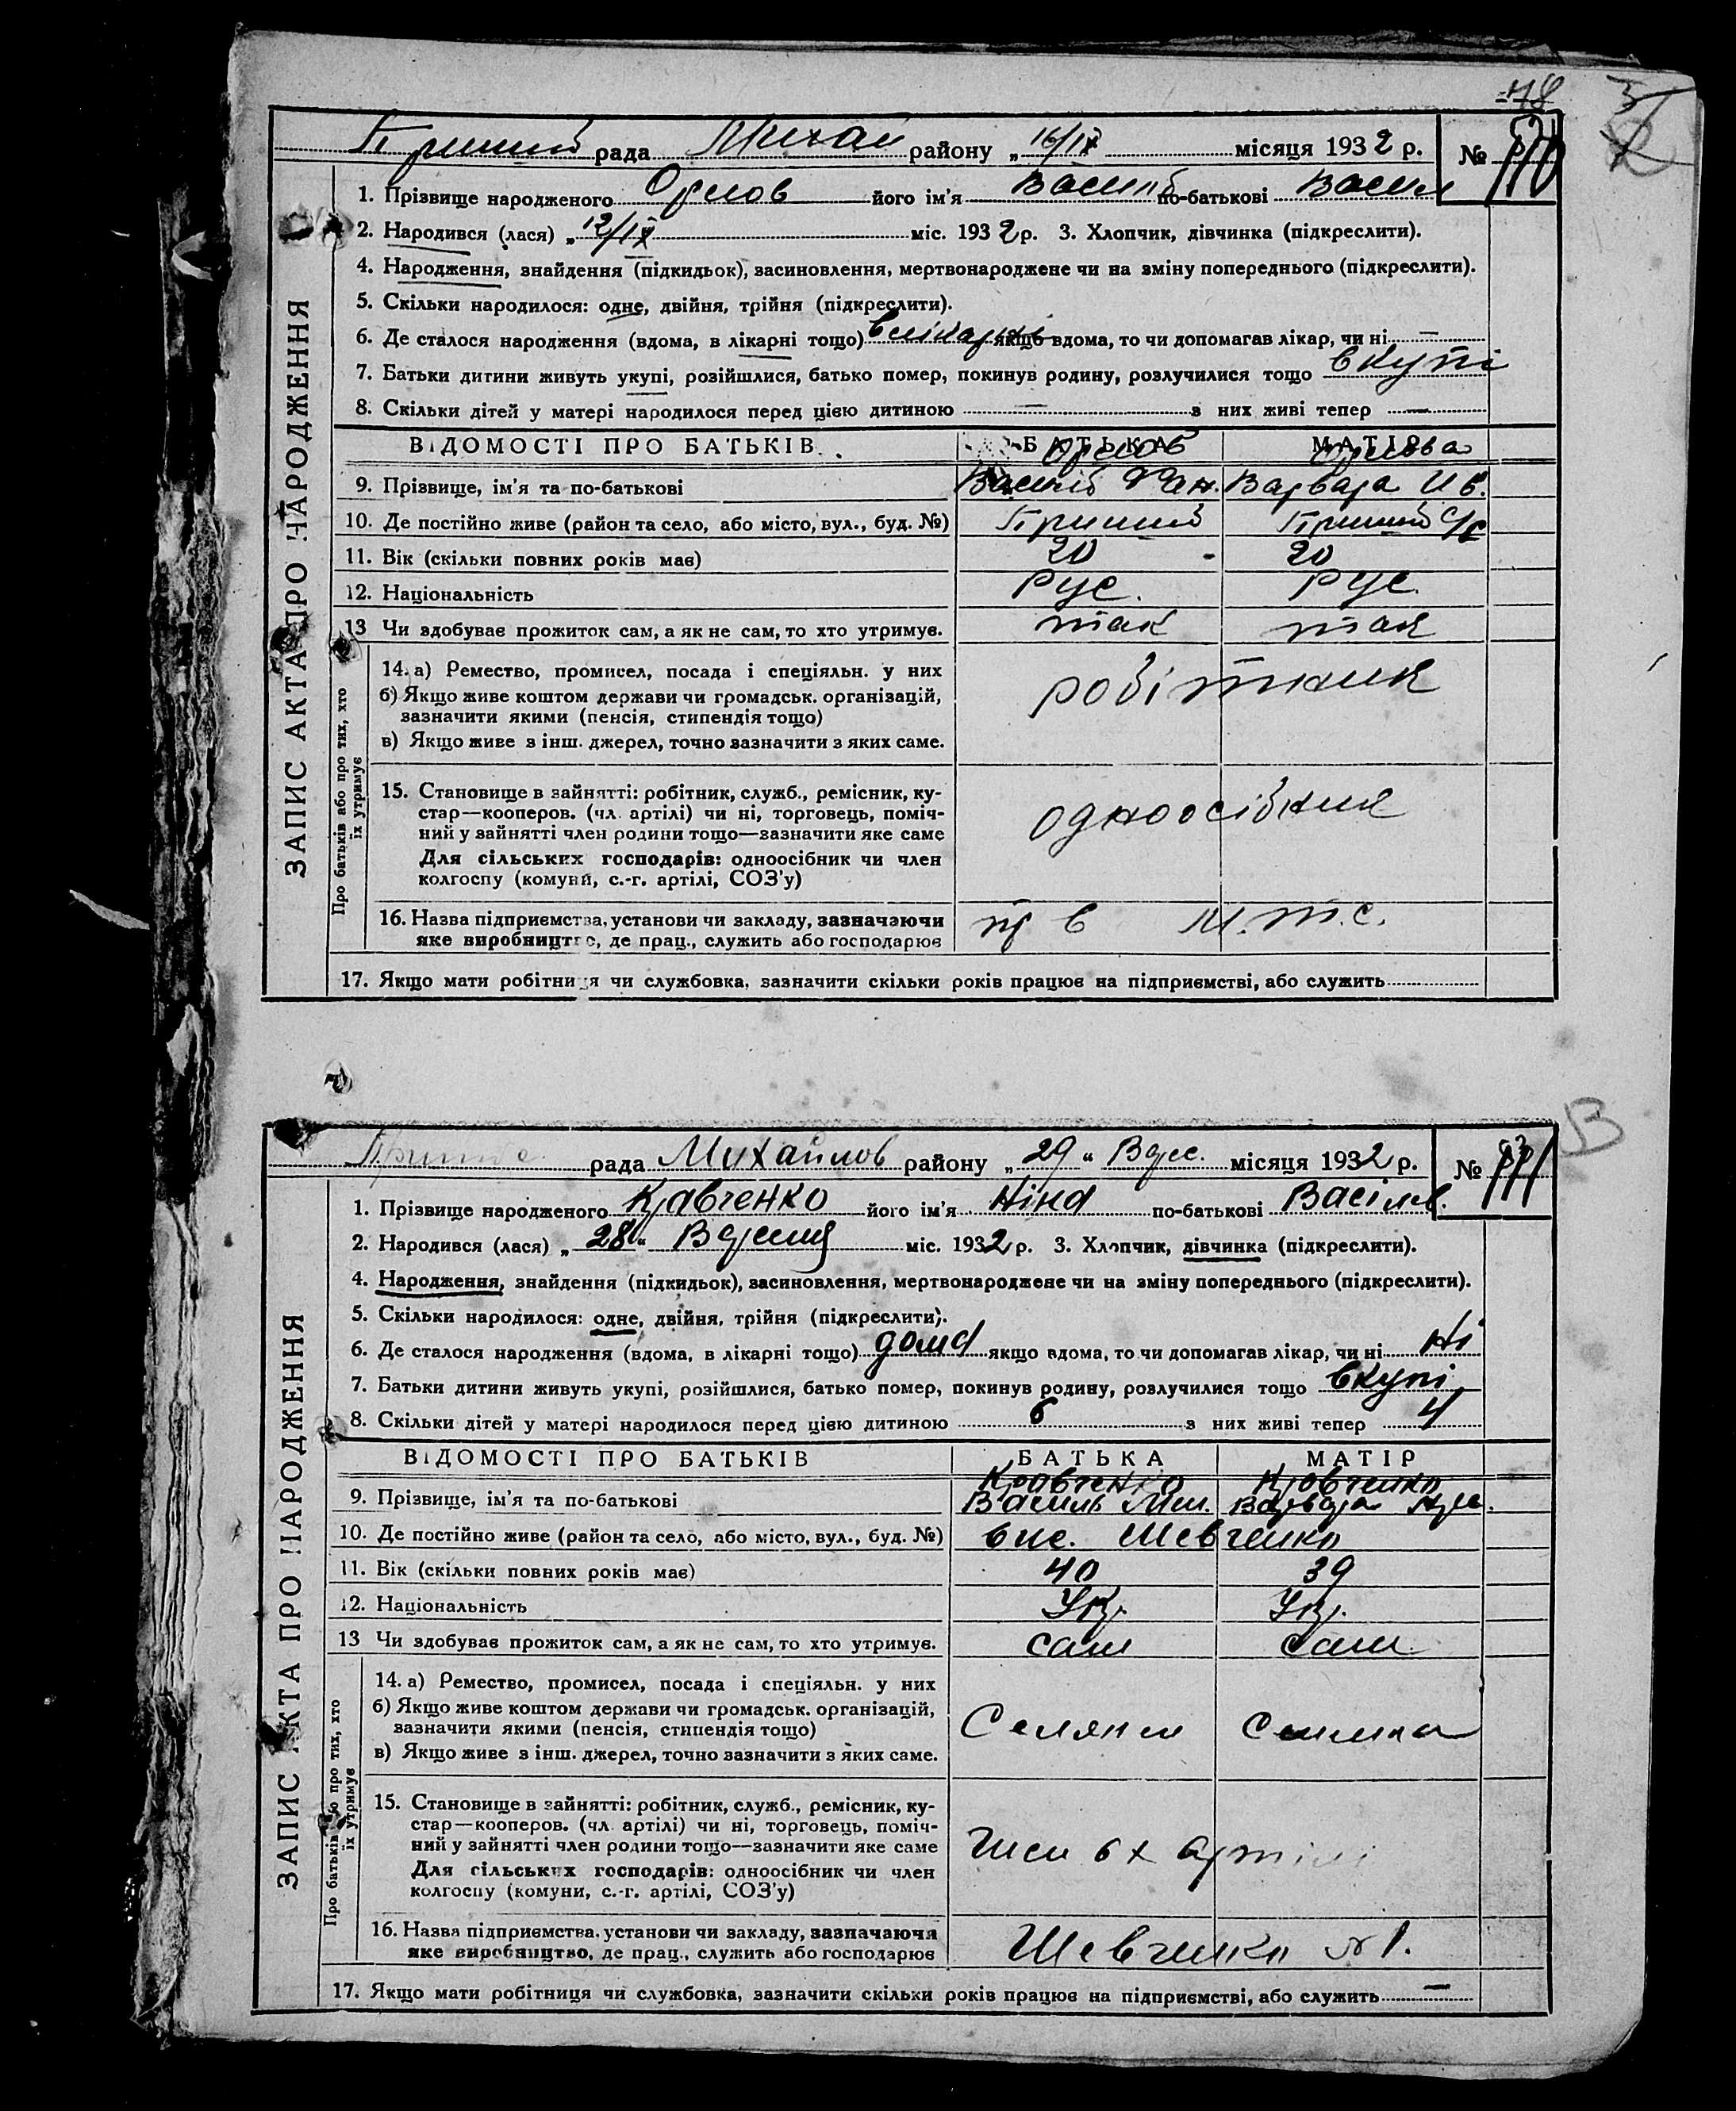 Пришиб рада Михай району „ 16/IX місяця 1932 р. №
1. Прізвище народженого Орлов його ім'я Василь по-батькові Васил
2. Народився (лася) „ 12/IX міс. 1932 р. 3. Хлопчик, дівчинка (підкреслити).
4. Народження, знайдення (підкидьок), засиновлення, мертвонароджене чи на зміну попереднього (підкреслити).
5. Скільки народилося: одне, двійня, трійня (підкреслити).
6. Де сталося народження (вдома, в лікарні тощо) в лікарні якщо вдома, то чи допомагав лікар, чи ні —
7. Батьки дитини живуть укупі, розійшлися, батько помер, покинув родину, розлучилися тощо вкупі
8. Скільки дітей у матері народилося перед цією дитиною — з них живі тепер —
ЗАПИС АКТА ПРО НАРОДЖЕННЯ
ВІДОМОСТІ ПРО БАТЬКІВ БАТЬКА МАТІР
Орлов Орлова
9. Прізвище, ім'я та по-батькові Василь Варвара Ив.
10. Де постійно живе (район та село, або місто, вул., буд. №) Пришиб Пришиб с/с
11. Вік (скільки повних років має) 20 20
12. Національність Рус. Рус.
13 Чи здобуває прожиток сам, а як не сам, то хто утримує. так так
Про батьків або про тих, хто
їх утримує
14. а) Ремество, промисел, посада і спеціяльн. у них
робітник
б) Якщо живе коштом держави чи громадськ. організацій,
зазначити якими (пенсія, стипендія тощо)
в) Якщо живе з інш. джерел, точно зазначити з яких саме.
15. Становище в зайнятті: робітник, служб., ремісник, ку-
стар—кооперов. (чл. артілі) чи ні, торговець, поміч-
одноосібник
ний у зайнятті член родини тощо—зазначити яке саме
Для сільських господарів: одноосібник чи член
колгоспу (комуни, с.-г. артілі, СОЗ'у)
16. Назва підприємства, установи чи закладу, зазначаючи
в М.т.с.
яке виробництво, де прац., служить або господарює
17. Якщо мати робітниця чи службовка, зазначити скільки років працює на підприємстві, або служить
В
рада Михайлов району „ 29 “ Врес. місяця 1932 р. №
1. Прізвище народженого Кравченко його ім'я Ніна по-батькові Васілів.
2. Народився (лася) „ 28 “ Вресня міс. 1932 р. 3. Хлопчик, дівчинка (підкреслити).
4. Народження, знайдення (підкидьок), засиновлення, мертвонароджене чи на зміну попереднього (підкреслити).
5. Скільки народилося: одне, двійня, трійня (підкреслити).
6. Де сталося народження (вдома, в лікарні тощо) дома якщо вдома, то чи допомагав лікар, чи ні Ні
7. Батьки дитини живуть укупі, розійшлися, батько помер, покинув родину, розлучилися тощо вкупі
8. Скільки дітей у матері народилося перед цією дитиною 6 з них живі тепер 4
ЗАПИС АКТА ПРО НАРОДЖЕННЯ
ВІДОМОСТІ ПРО БАТЬКІВ БАТЬКА МАТІР
Кравченко Кравченко
9. Прізвище, ім'я та по-батькові Василь Варвара
10. Де постійно живе (район та село, або місто, вул., буд. №) Шевченко
11. Вік (скільки повних років має) 40 39
12. Національність Укр. Укр.
13 Чи здобуває прожиток сам, а як не сам, то хто утримує. сам сам
Про батьків або про тих, хто
їх утримує
14. а) Ремество, промисел, посада і спеціяльн. у них
б) Якщо живе коштом держави чи громадськ. організацій,
зазначити якими (пенсія, стипендія тощо)
Селянин Селянка
в) Якщо живе з інш. джерел, точно зазначити з яких саме.
15. Становище в зайнятті: робітник, служб., ремісник, ку-
стар—кооперов. (чл. артілі) чи ні, торговець, поміч-
ний у зайнятті член родини тощо—зазначити яке саме
артілі
Для сільських господарів: одноосібник чи член
колгоспу (комуни, с.-г. артілі, СОЗ'у)
16. Назва підприємства, установи чи закладу, зазначаючи
Шевченко №1.
яке виробництво, де прац., служить або господарює
17. Якщо мати робітниця чи службовка, зазначити скільки років працює на підприємстві, або служить —